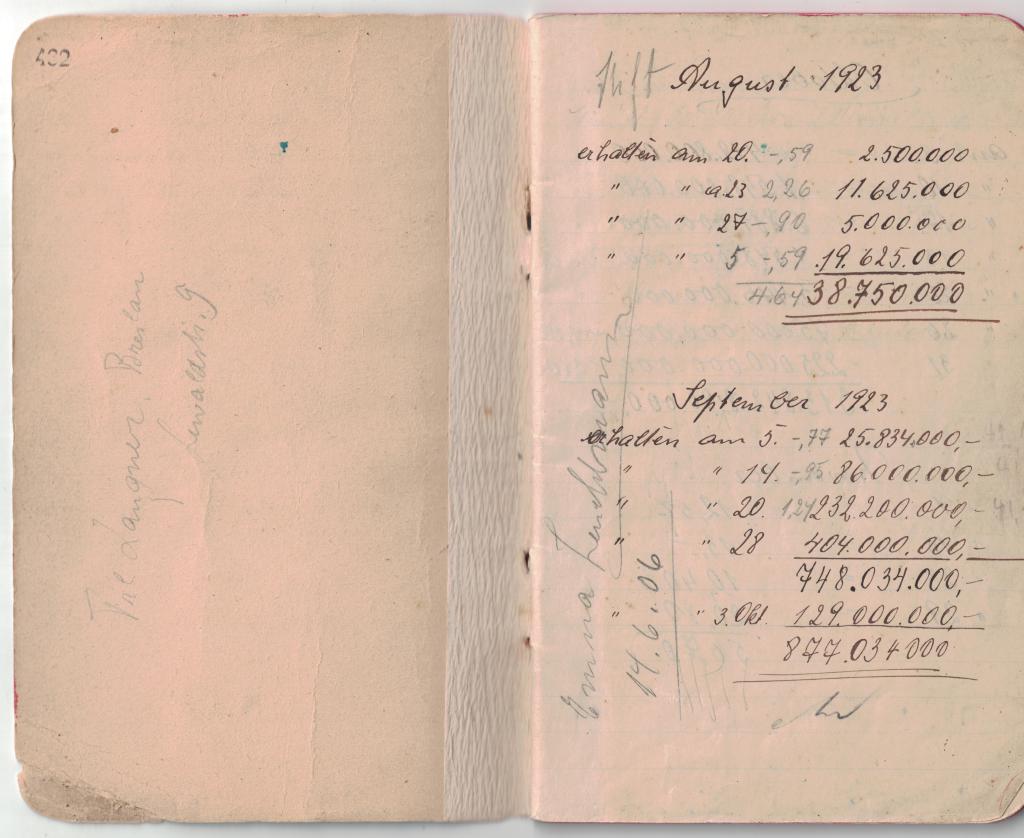 402
Frl. Langner, Breslau
August 1923
erhalten am 20. -,59 2.500.000
" " 23 2,26 11.625.000
" " 27 -,90 5.000.000
" " 5 -,59 19.625.000
4.64 38.750.000
September 1923
erhalten am 5. -,77 25.834.000,-
" " 14. -,95 86.000.000,-
" " 20. 1,27 232.200.000,-
" " 28 404.000.000,-
748.034.000,-
" " 3. Okt. 129.000.000,-
877.034000
Emma
14.6.06